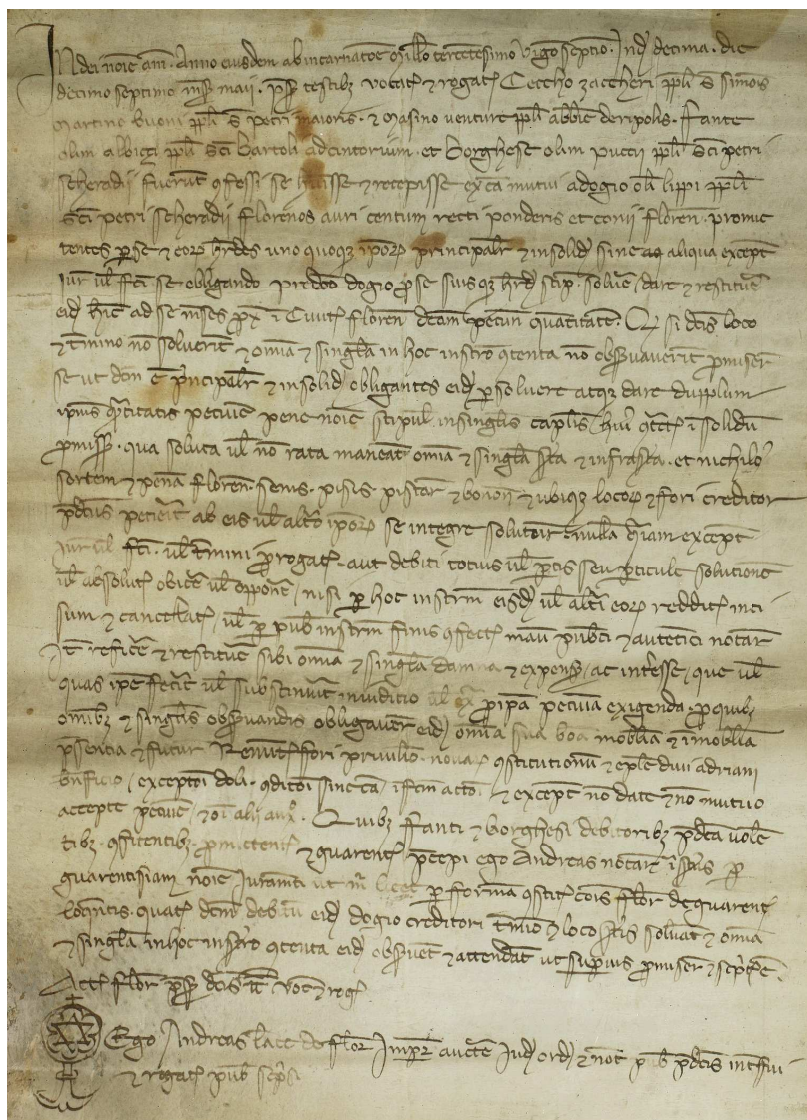 In dei noīe am̄. Anno eiusdem ab incarnatōe Millō tercētesimo vigō septīo. Ind decima. die
decimo septimo mēs maii. p̄s testibꝫ vocat̄ ⁊ rogat̄ Ceccho zaccheri pp̄li s̄ simōis
Martino buoni pp̄li s̄ petri maioris. ⁊ Masino venture pp̄li abb̄ie deripolis. Fante
olim albiçi pp̄li sc̄i bartoli et borghese olim puccii pp̄li sc̄i petri
scheradii fuerūt ꝯfessi se hūisse ⁊ recepisse ex cā mutui adogio ol̄i lippi pp̄li
sc̄i petri scheradii Florenos auri centum recti ponderis et conii floren̄. promic
tentes ꝑ se ⁊ eorꝝ hr̄des uno quoqꝫ ip̄orꝝ principalr̄ ⁊ insolid sine aliqua except̄
iur̄ ul̄ fc̄i se obligando predc̄o dogio ꝓ se suisqꝫ hr̄d stip̄. solūe dare ⁊ restitūe
eid hīc ad se mēses ꝓx̄ ī Civit̄ floren̄ dc̄am pecun̄ quātitatē. Q si dc̄is loco
⁊ t̄mino nō solverīt ⁊ om̄ia ⁊ singl̄a in hoc instr̄o ꝯtenta nō obs̄uaverīt ꝓmiser̄
se ut dc̄m ē p̄ncipalr̄ ⁊ insolid obligantes eid ꝑsolvere atqꝫ dare dupplum
ip̄ius q̄titatis pecunie pene noīe stipul̄ insingl̄is capl̄is ī solidū
ꝓmiss̄. qua soluta ul̄ nō rata maneāt om̄ia ⁊ singl̄a sc̄ta ⁊ infrasc̄ta. et nichilo
sortem ⁊ penā floren̄. senis. pisis. pistor̄ ⁊ bonon̄ ⁊ ubiqꝫ locorꝝ ⁊ fori creditor
p̄dc̄us petierīt ab eis ul̄ alt̄o ip̄orꝝ se integre soluturꝭ nulla except̄
iur̄ ul̄ fc̄i. ul̄ t̄mini ꝓrogat̄. aut debiti totius ul̄ ꝑtis seu ꝑticule solutionē
ul̄ absolut̄ obicē ul̄ opponē, nisi ꝑ hoc instr̄m eisd ul̄ alt̄i eorꝝ reddit̄ inci
sum ⁊ cancellat̄ ul̄ ꝑ pub̄ instr̄m finis ꝯfect̄ manū pub̄ci ⁊ autentici notar̄
It̄ reficē ⁊ restitūe sibi om̄ia ⁊ singl̄a damna ⁊ expens̄ ac int̄esse, que ul̄
quas ip̄e fec̄it ul̄ substinūit in iuditio ul̄ ex̄ ꝓ ip̄a pecunia exigenda. ꝓ quibꝫ
om̄ibꝫ ⁊ singl̄is obs̄uandis obligaver̄ eid om̄ia sua boā mobl̄ia ⁊ īmobl̄ia
p̄sencia ⁊ futur̄ Renūt̄ fori privil̄io. novarꝝ ꝯstitutionū ⁊ epl̄e divi adriani
bn̄ficio, exceptōi doli. ꝯditōi sine cā, ī fc̄m actōi. ⁊ except̄ nō date ⁊ nō mutuo
accepte pecunie, ⁊ oī alii aux̄. Quibꝫ Fanti ⁊ borghesi debitoribꝫ p̄dc̄a volē
tibꝫ. ꝯfitentibꝫ ꝓmictentibꝫ ⁊ guarent̄ p̄cepi ego Andreas notar̄ ī sc̄tus ꝑ
guarentisiam noīe Iuram̄ti ut m̄ licet ꝑ forma ꝯstit̄ cōis flor̄ de guarent̄
loq̄ntis. quat̄ dc̄m debitū eid dogio creditori t̄mīo ⁊ loco sc̄tis solvāt ⁊ om̄ia
⁊ singl̄a in hoc instr̄o ꝯtenta eid obs̄uēt ⁊ attendāt ut superius ꝓmiser̄ ⁊ sc̄pt̄ ē.
Act̄ flor̄ p̄s dc̄is t̄t̄ voc̄ ⁊ rog̅
Ego Andreas lāpi de flor̄ Imper̄ auctē Iud ord ⁊ not̄ pub̄ p̄dc̄is int̄fui
⁊ rogat̄ pub̄ sc̄psi